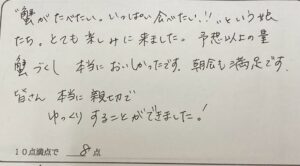 "蟹がたべたい。いっぱい食べたい!!"という娘
たち。とても楽しみに来ました。予想以上の量
蟹づくし 本当においしかったです。朝食も満足です。
皆さん 本当に親切で
ゆっくりすることができました!
10点満点で 8点